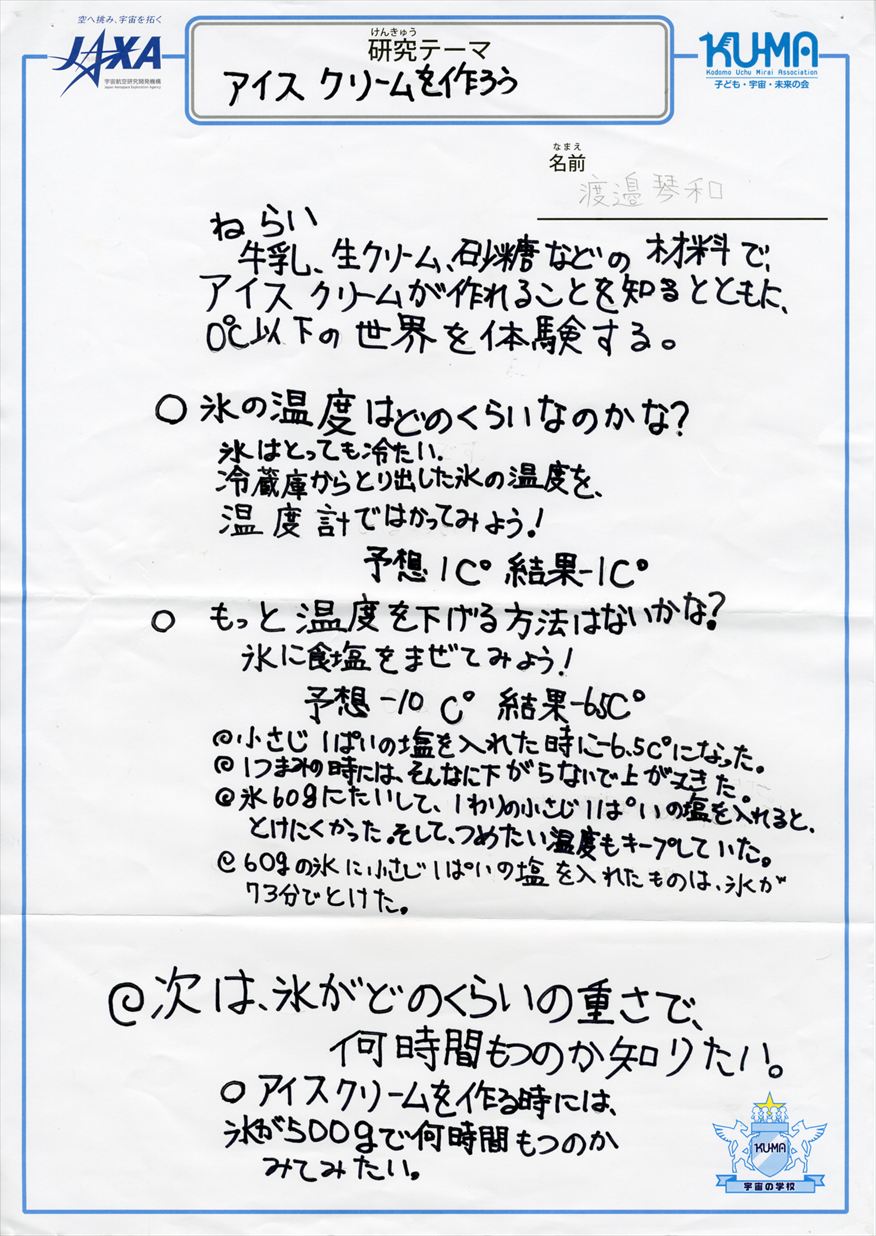 空へ挑み、宇宙を拓く
JAXA
宇宙航空研究開発機構
Japan Aerospace Exploration Agency
けんきゅう
研究テーマ
アイスクリームを作ろう
KU-MA
Kodomo Uchu Mirai Association
子ども・宇宙・未来の会
なまえ
名前
渡邉琴和
ねらい
牛乳、生クリーム、砂糖などの材料で、
アイスクリームが作れることを知るとともに、
0℃以下の世界を体験する。
○氷の温度はどのくらいなのかな?
氷はとっても冷たい。
冷蔵庫からとり出した氷の温度を、
温度計ではかってみよう!
予想 1C° 結果-1C°
○ もっと温度を下げる方法はないかな?
氷に食塩をまぜてみよう!
予想 -10 C° 結果-6.5C°
@小さじ1ぱいの塩を入れた時に-6.5C°になった。
@1つまみの時には、そんなに下がらないで上がってきた。
@氷60gにたいして、1わりの小さじ1ぱいの塩を入れると、
とけにくかった。そして、つめたい温度もキープしていた。
@60gの氷に小さじ1ぱいの塩を入れたものは、氷が
73分でとけた。
@次は、氷がどのくらいの重さで、
何時間もつのか知りたい。
○アイスクリームを作る時には、
氷が500gで何時間もつのか
みてみたい。
KU-MA
宇宙の学校